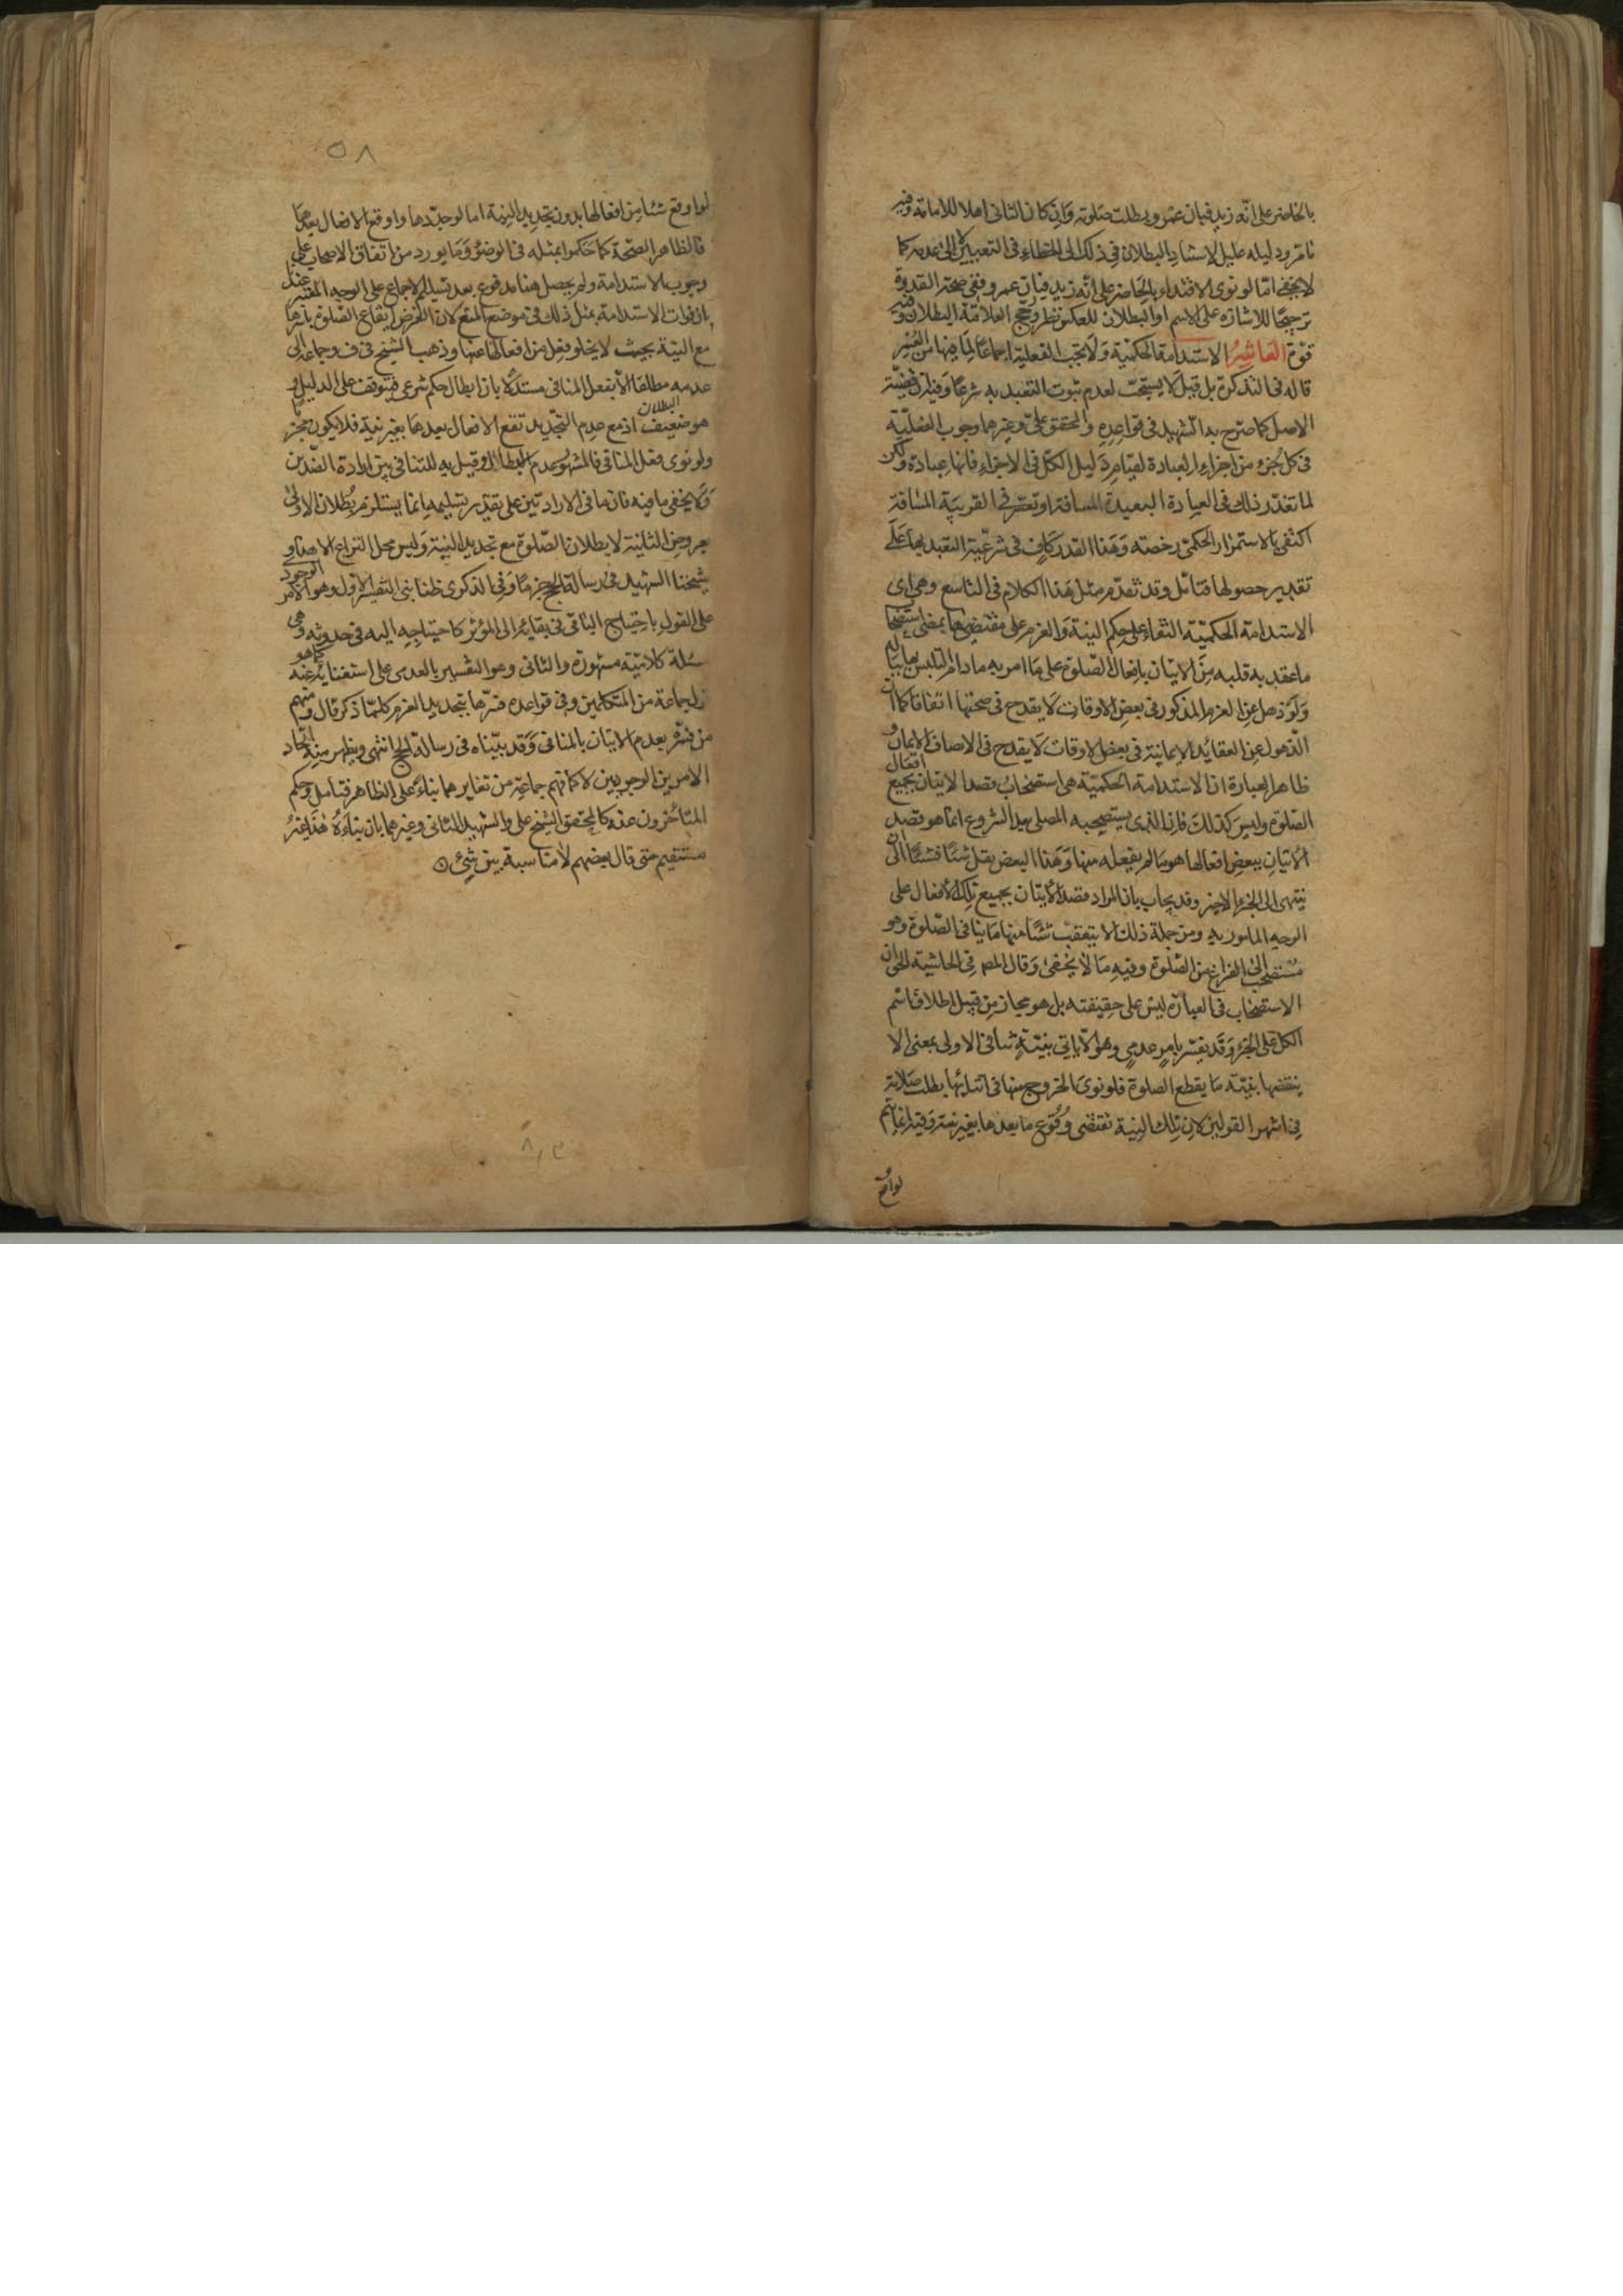 بالحاضر على انه زيد فبان عمرو بطلت صلوته وان كان الثانى اهلا للامامة وفيه
تامر ودليله عليل لاستناد البطلان فى ذلك الى الخطاء فى التعيين لا الى عدمه كما
لا يخفى امّا لو نوى الاقتداء بالحاضر على انّه زيد فبان عمرو ففى صحة القدوة
ترجيحًا للاشارة على الاسم او البطلان للعكس نظر ورجّح العلامة البطلان وفيه
قوّة العَاشِرُ الاستدامة الحكمية وَلا تجب الفعلية اجماعًا لما فيها من العُسر
قاله فى التذكرة بل قيل لا يستحبّ لعدم ثبوت التعبد به شرعًا وفيه ان قضيّة
الاصل كما صرح به الشهيد فى قواعده والمحقق على وغيرهما وجوب الفعليّة
فى كل جزء من اجزاء العبادة لقيام دليل الكل فى الاجزاء فانها عبادة ولكن
لما تعذّر ذلك فى العبادة البعيدة المسافة او تعسّر فى القريبة المسافة
اكتفى بالاستمرار الحكمى رخصته وَهَذا القدر كاف فى شرعيّة التعبد بها على
تقدير حصولها فتامّل وقد تقدّم مثل هَذا الكلام فى التاسع وهى اى
الاستدامة الحكميّة البقاء على حكم النية وَالعزم على مقتضيها بمعنى استصحاب
ما عقد به قلبه مِنَ الاتيان بافعال الصّلوة على ما امر به مادام التلبس بها باقيا
وَلَو ذهل عن العزم المذكور فى بعض الاوقات لَا يقدح فى صحتها اتفاقا كما ان
الذّهول عن العقائد الايمانية فى بعض الاوقات لَا يقدح فى الاتصاف بالايمان و
ظاهر العبارة ان الاستدامة الحكميّة هى استصحابُ قصد الاتيان بجميع افعال
الصّلوة وليسَ كذلك فان الذى يستصحبه المصلى بعد الشروع انما هو قصد
الاتيان ببعض افعالها هو ما لم يفعله منها وَهَذا البعض يقل شئًا فشئًا الى ان
ينتهى الى الجزء الاخير وقد يجاب بان المراد قصد الاتيان بجميع تلك الافعال على
الوجه المامور به ومن جملة ذلك الا يتعقبْ شئًا منها ما ينافى الصّلوة وهو
مُستصحب الى الفراغ من الصّلوة وفيه مَا لا يخفى وَقال المصـ فى الحاشية الحق ان
الاستصحاب فى العبارة ليس على حقيقته بل هو مجاز من قبيل اطلاق اسم
الكل على الجزء وَقد يفسّر بامر عدمى وهو الّا ياتى بنيّة تنافى الاولى بمعنى الا
ينقضها بنيّة ما يقطع الصلوة فلو نوى الخروج منها فى اثنائها بطلت صلاته
فى اشهر القولين لان تلك النية تقتضى وُقُوع ما بعدها بغير نية وَفيه انما يتم
لو اوقع
٥٨
لو اوقع شئا من افعالها بدون تجديد النية اما لو جدّدها واوقع الافعال بعدها
فالظاهر الصّحة كما حَكموا بمثله فى الوضوء وَمَا يورد من اتفاق الاصحاب على
وجوب الاستدامة ولم يحصل هنا مدفوع بعد تسليم الاجماع على الوجه المفسّر عندك
بان فوات الاستدامة بمثل ذلك فى موضع المنع لان الغرض ايقاع الصّلوة باسرها
مع النيّة بحيث لا يخلو فعل من افعالها عنها وذهب الشيخ فى ف وجماعة الى
عدمه مطلقا الّا بفعل المنافى مستدلًا بان ابطال حكم شرعى فيتوقف على الدليل و
هو ضعيف اذ مع عدم التجديد تقع الافعال بعدها بغير نية فلا يكون مجزيا
ولو نوى فعل المنافى فالمشهور عدم البطلان وقيل به للتنافى بين ارادة الضّدين
وَلا يخفى ما فيه فان ما فى الارادتين على تقدير تسليمه انما يستلزم بُطلان الاولى
بعروض الثانية لا بطلان الصّلوة مع تجديد النية وَليس محل النزاع الا هذا و
شيخنا الشهيد فى رسالة الحج جزمًا وَفى الذكرى ظنا بنى التفسير الاول وهو الامر الوجودى
على القول باحتياج الباقى فى بقائه الى المؤثر كاحتياجه اليه فى حدوثه وهى
مسئلة كلاميّة مشهورة والثانى وهو التفسير بالعدمى على استغنائه عنه كما هو
راى جماعة من المتكلمين وفى قواعده فسّرها بتجديد العزم كلمّا ذكر قال ومنهم
من فسّره بعدم الاتيان بالمنافى وَقد بيّناه فى رسالة الحج انتهى ويظهر منه اتحاد
الامرين الوجوديين لا كما فهم جماعة من تغايرهما بناءً على الظاهر فتامل وحكم
المتأخرون عنه كالمحقق الشيخ على والشهيد الثانى وغيرهما بان بناءَهُ هَذا غيرُ
مستقيم حتى قال بعضهم لا مناسبة بين شئ